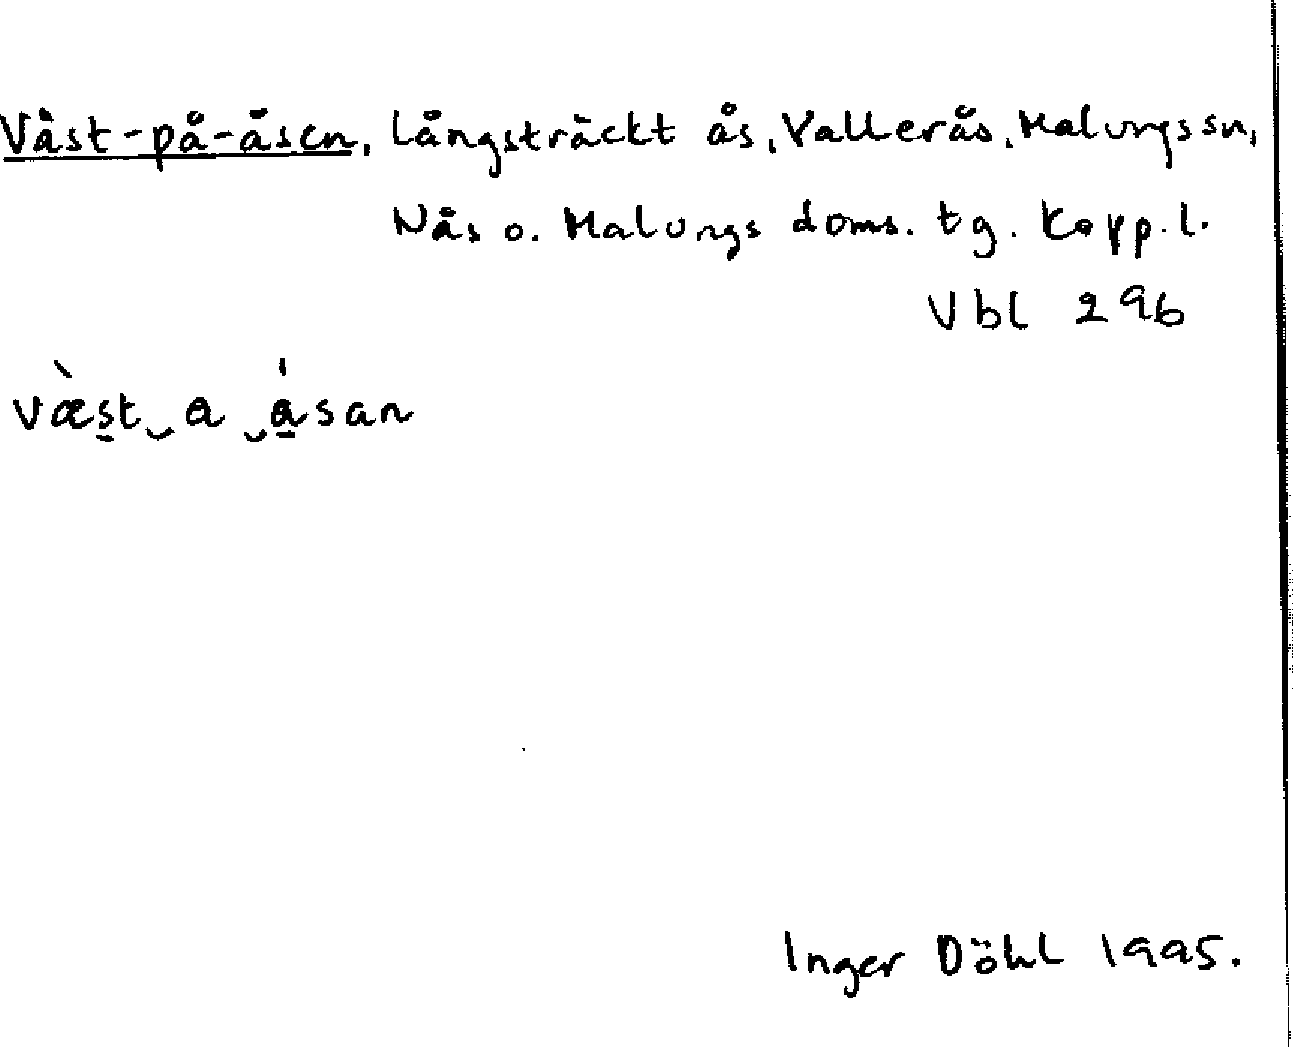 Väst-på-åsen, långsträckt ås, Vallerås, Malungs sn,
Nås o. Malungs doms. tg. Kopp. l.
Vbl 296
væ̀st‿a‿ásan
Inger Döhl 1995.